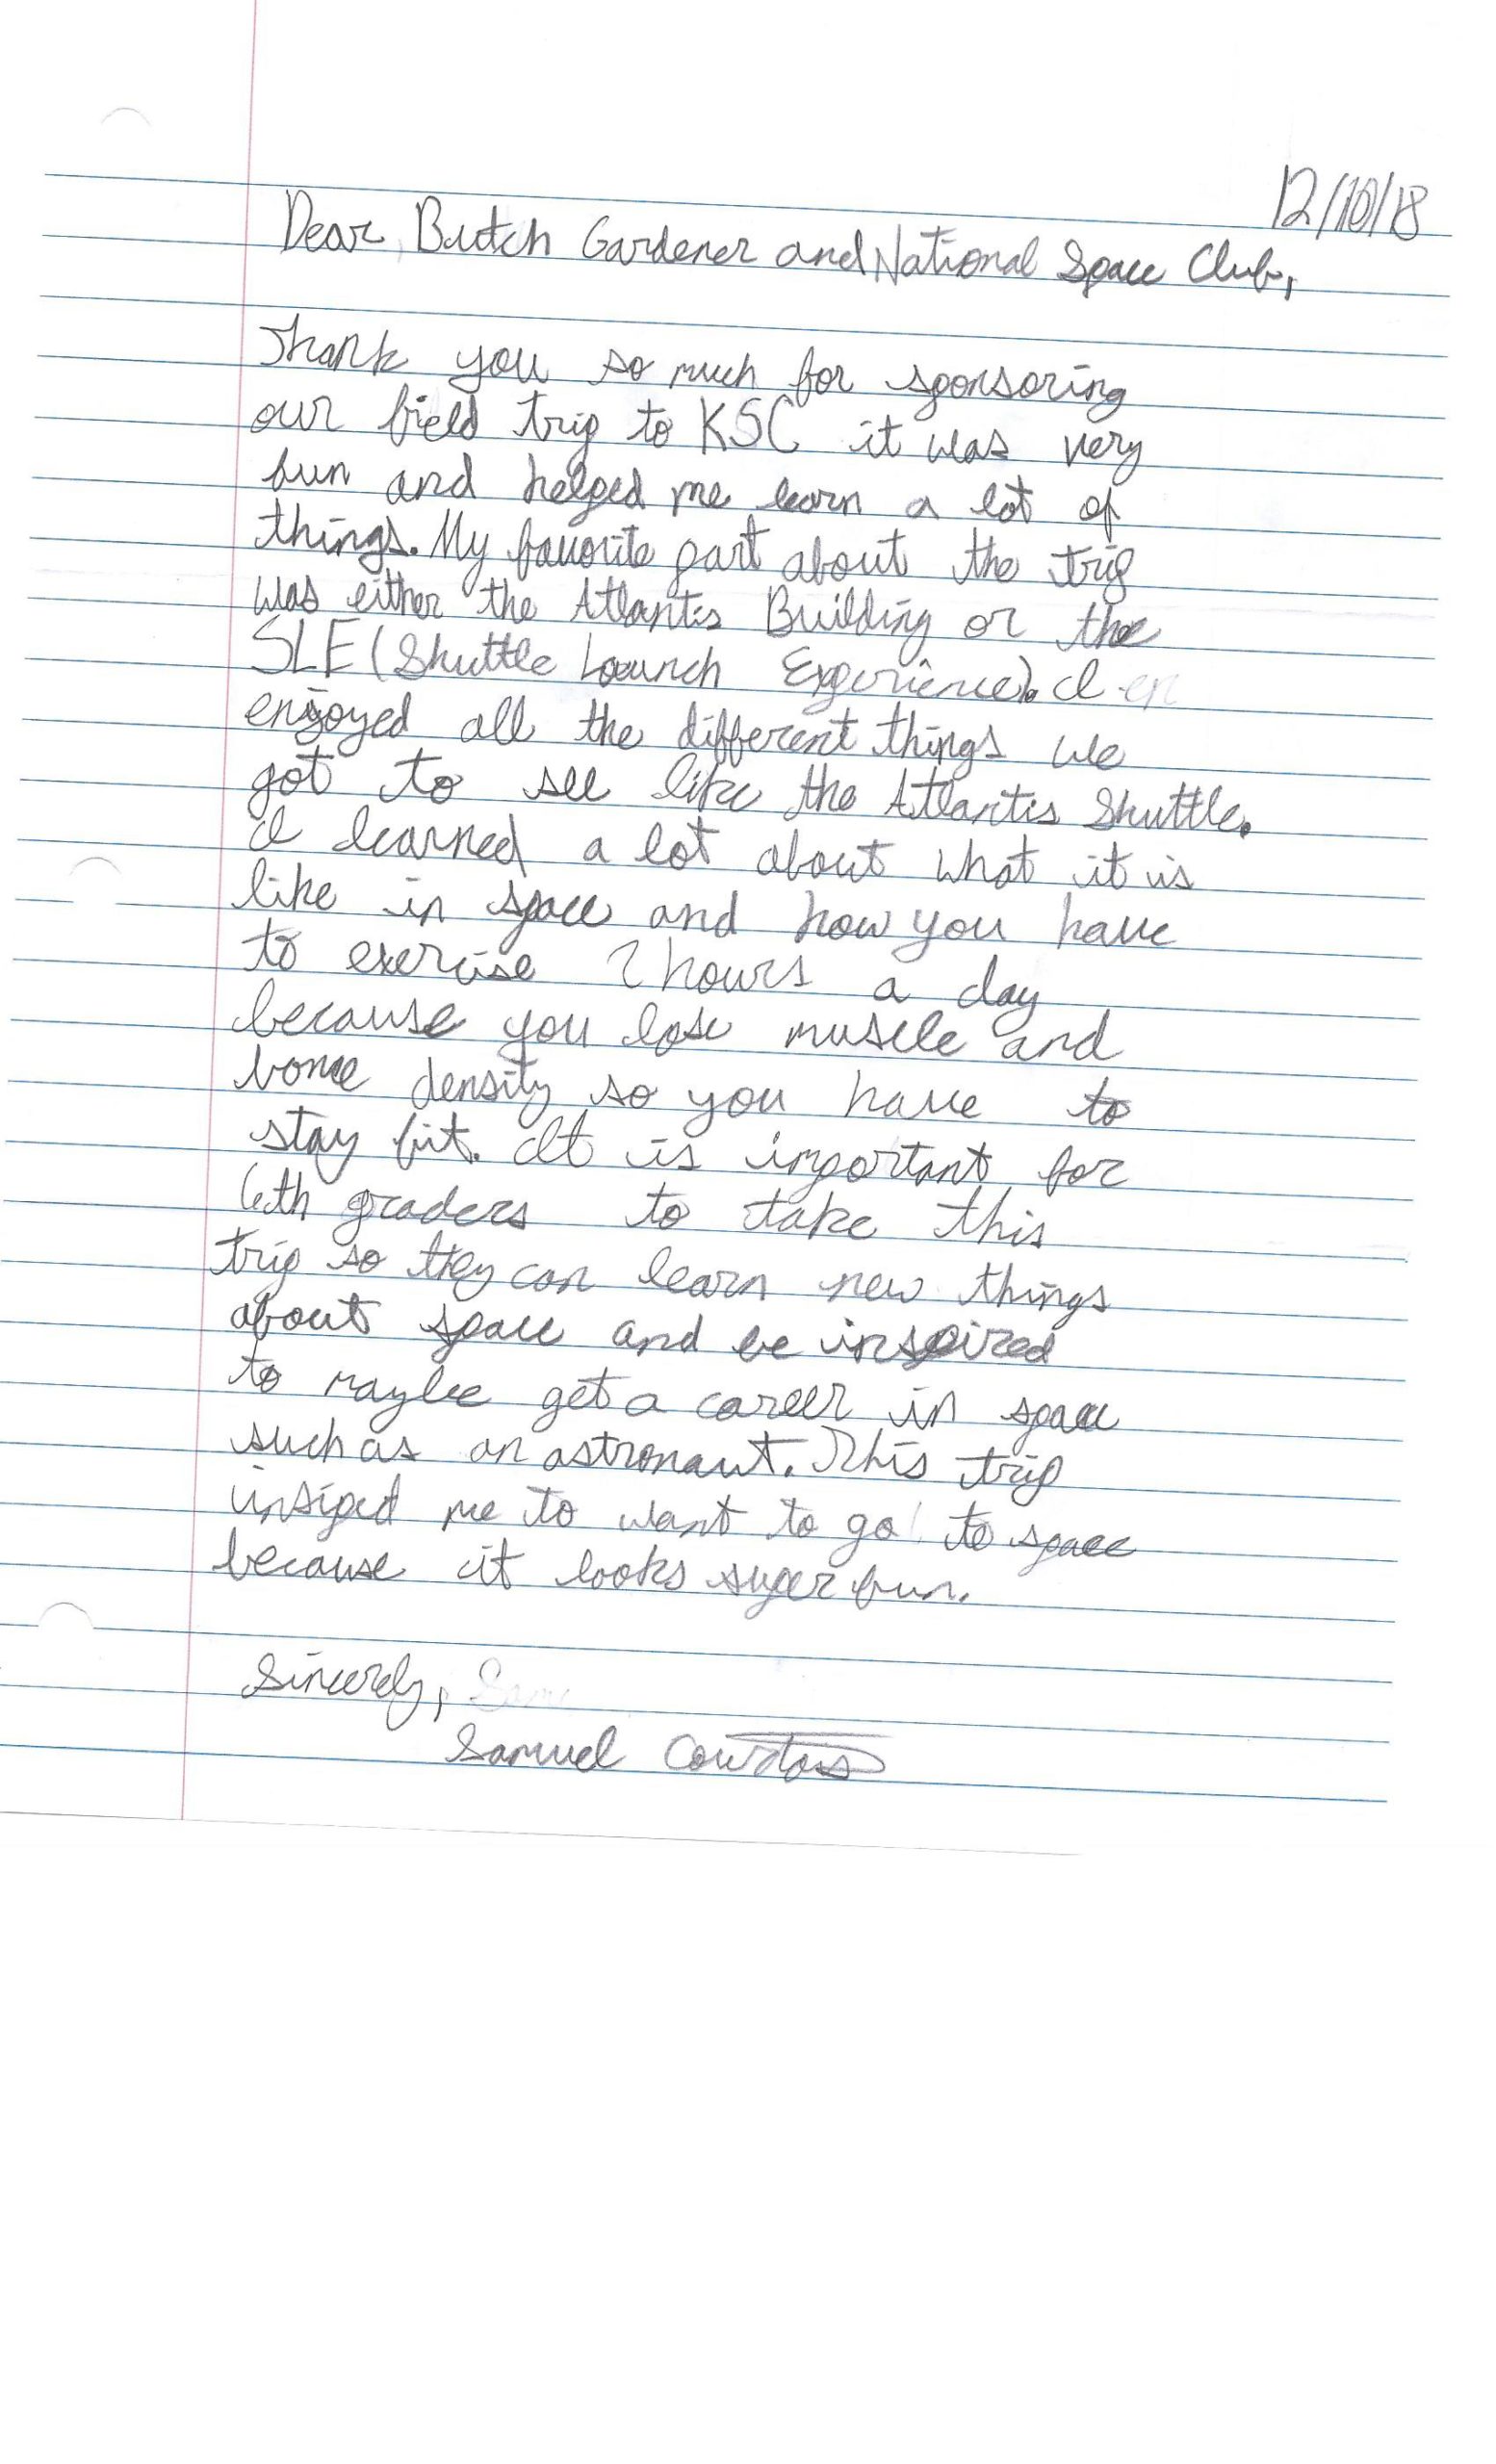 12/10/18
Dear, Butch Gardener and National Space Club,
Thank you so much for sponsoring
our field trip to KSC it was very
fun and helped me learn a lot of
things. My favorite part about the trip
was either the Atlantis Building or the
SLE (Shuttle Launch Experience). I en
enjoyed all the different things we
got to see like the Atlantis Shuttle.
I learned a lot about what it is
like in space and how you have
to exercise 2 hours a day
because you lose muscle and
bone density so you have to
stay fit. It is important for
6th graders to take this
trip so they can learn new things
about space and be inspired
to maybe get a career in space
such as an astronaut. This trip
insiped me to want to go to space
because it looks super fun.
Sincerely, Sam
Samuel